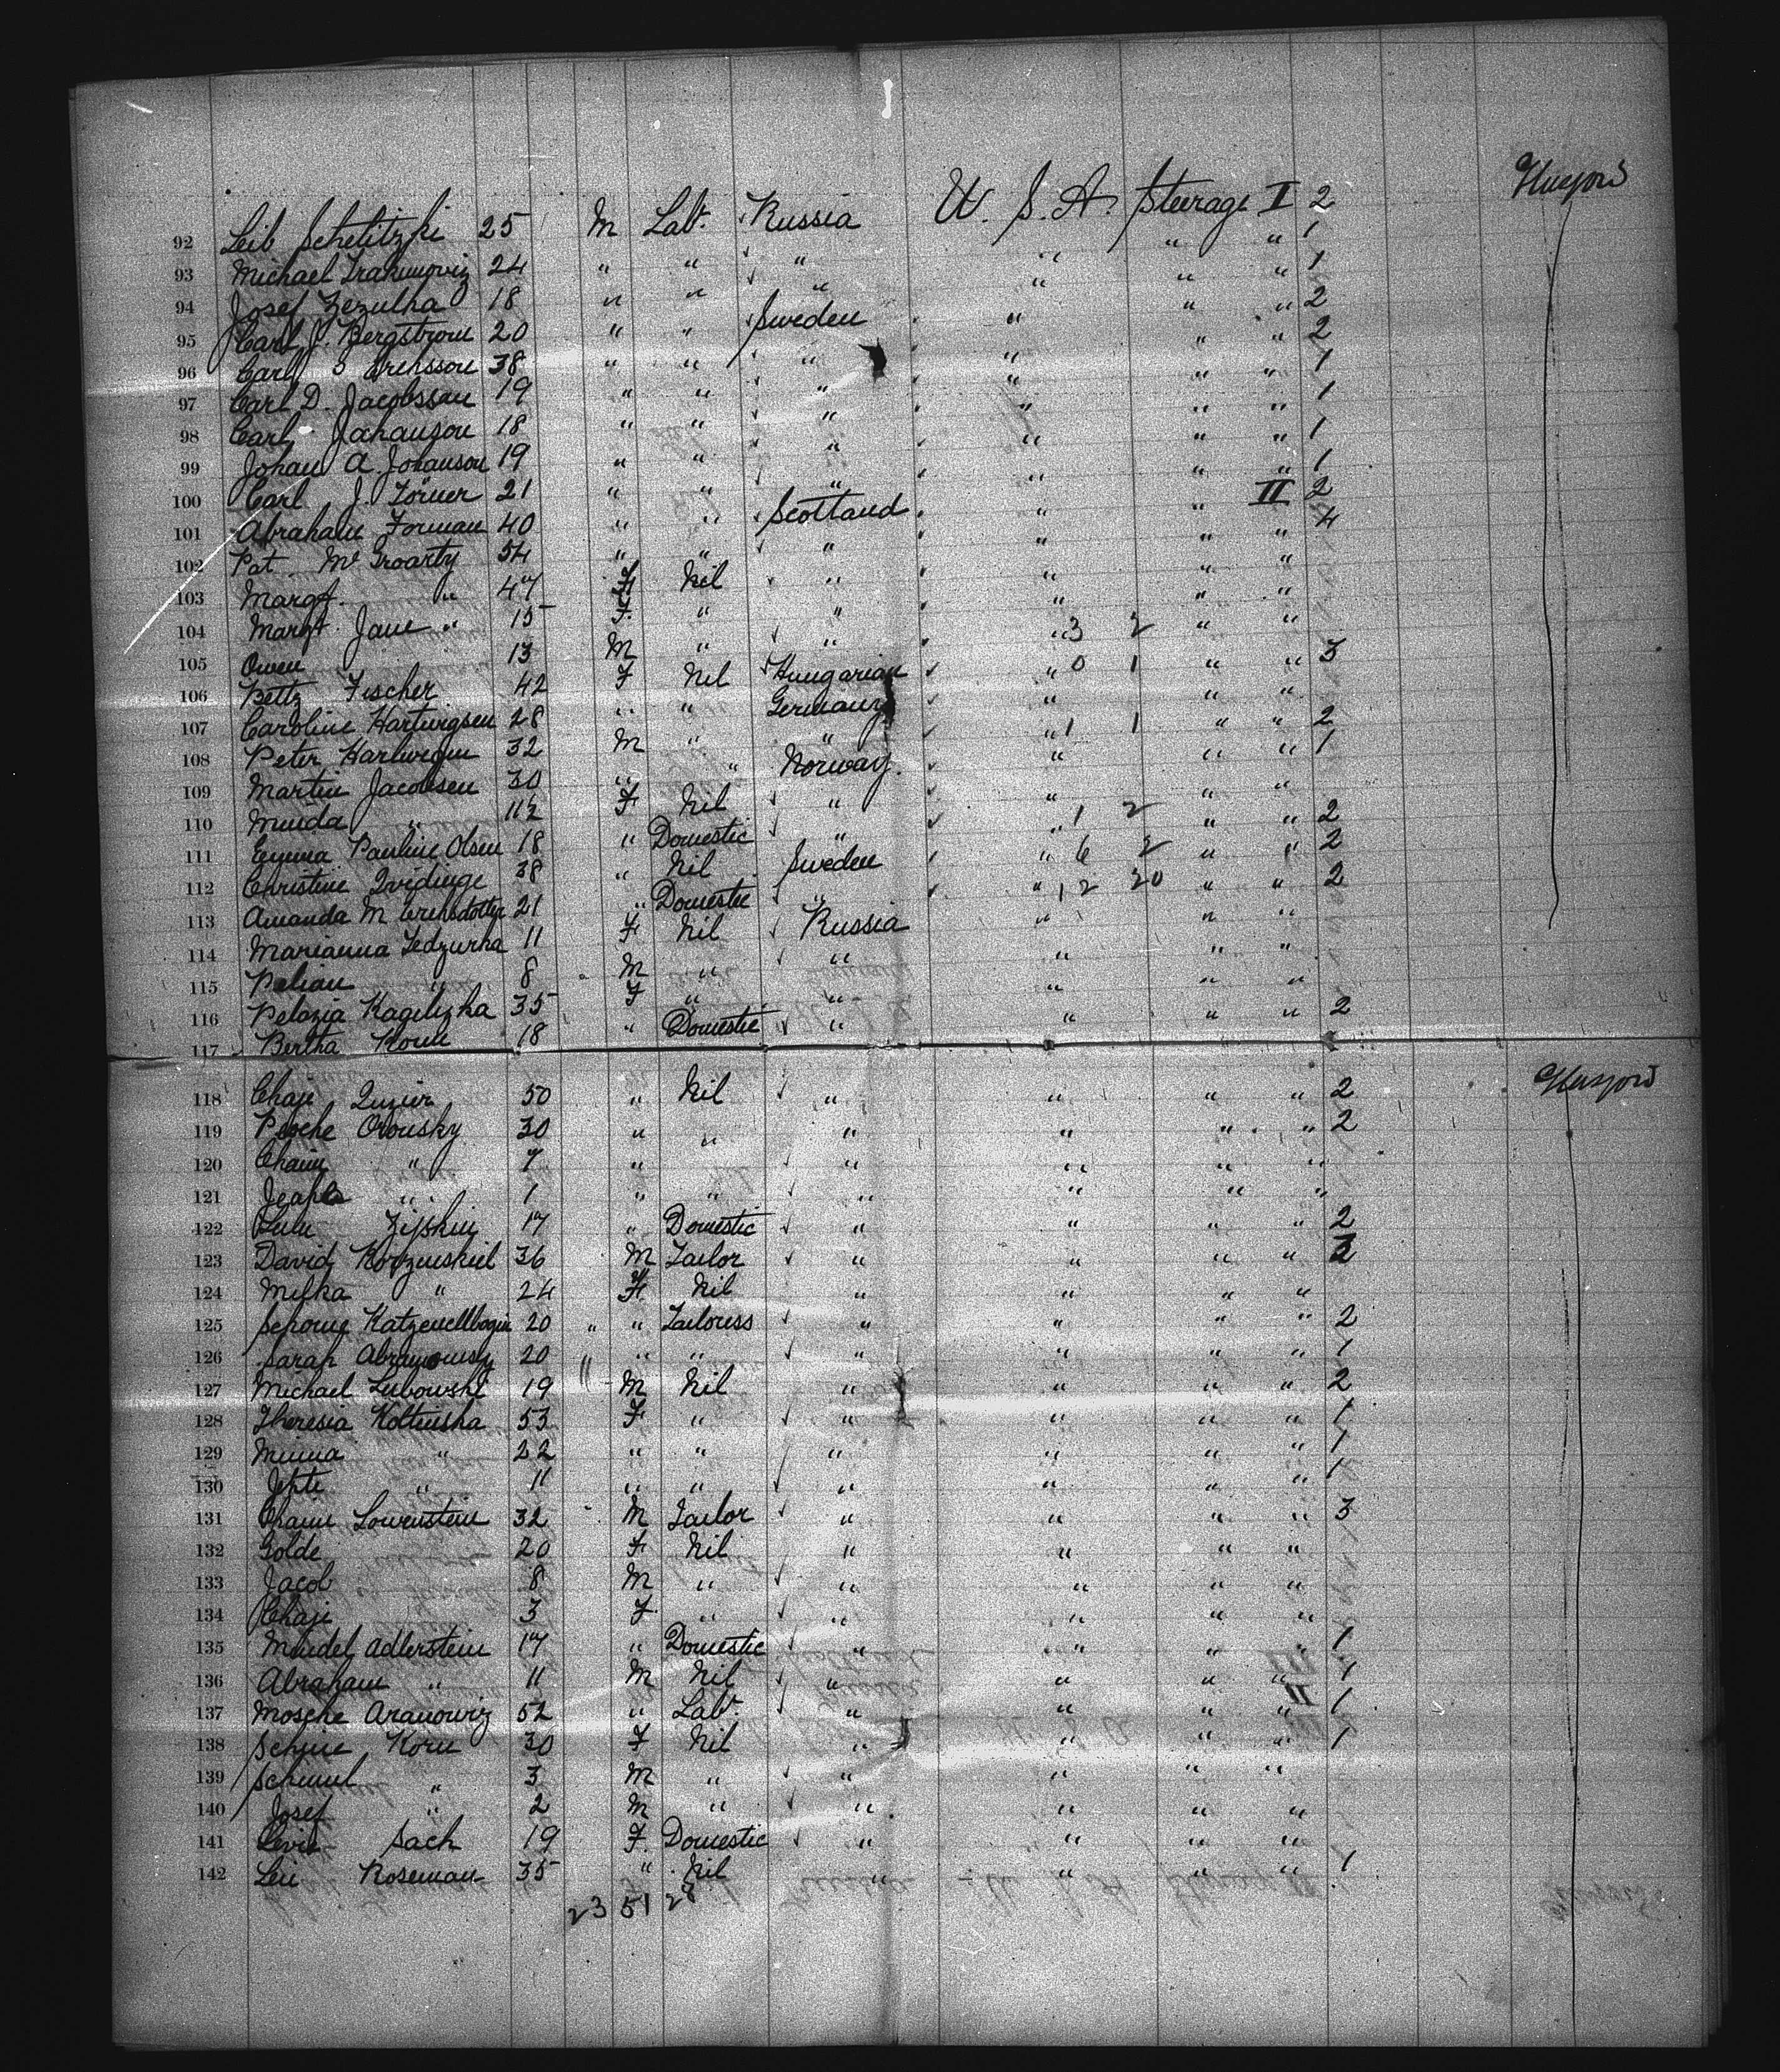 92 Leib Schelitzki 25 M Lab. Russia U. S. A. Steerage I 2 Glasgow
93 Michael 24 " " " " " " 1
94 Josef Zezulka 18 " " " " " " 1
95 Carl J. Bergstrom 20 " " Sweden " " " 2
96 Carl 38 " " " " " " 2
97 Carl D. Jacobsson 19 " " " " " " 1
98 Carl Johanson 18 " " " " " " 1
99 Johan A. Johanson 19 " " " " " " 1
100 Carl J. Törner 21 " " " " " " 1
101 Abraham Forman 40 " " Scotland " " II 2
102 Pat Mc Groarty 54 " " " " " " 4
103 Margt. " 47 F Nil " " " "
104 Margt. Jane " 15 F. " " " " "
105 Owen 13 M " " " 3 2 " "
106 Betty Fischer 42 F Nil Hungarian " 0 1 " " 3
107 Caroline Hartwigsen 28 " " Germany " " "
108 Peter 32 M " " " 1 1 " " 2
109 Martin Jacobsen 30 " " Norway " " " 1
110 " 11½ F Nil " " " "
111 Emma Pauline Olsen 18 " Domestic " " 1 2 " " 2
112 Christine 38 " Nil Sweden " 6 2 " " 2
113 Amanda M 21 " Domestic " " 12 20 " " 2
114 Marianna 11 F Nil Russia " " "
115 " 8 M " " " " "
116 Pelazia 35 F " " " " "
117 Bertha 18 " Domestic " " " " 2
118 50 " Nil " " " " 2 Glasgow
119 Orousky 30 " " " " " " 2
120 Chaim " 7 " " " " "
121 " 1 " " " " " "
122 Zipkin 17 " Domestic " " " " 2
123 David 36 M Tailor " " " " 2
124 Milka " 24 F. Nil " " " "
125 20 " " Tailoress " " " " 2
126 Sarah 20 " " " " " " 1
127 Michael Lubowski 19 M Nil " " " " 2
128 Theresia 53 F " " " " " 1
129 Minna " 22 " " " " " " 1
130 " 11 " " " " " " 1
131 Chaim Lowenstein 32 M Tailor " " " " 3
132 Golde 20 F Nil " " " "
133 Jacob 8 M " " " " "
134 Chaji 3 F " " " " "
135 Mindel Adlerstein 17 " Domestic " " " " 1
136 Abraham " 11 M Nil " " " " 1
137 Mosche Aranowiz 52 " Lab. " " " " 1
138 Korn 30 F Nil " " " " 1
139 Schmul " 3 M " " " " "
140 Josef " 2 M " " " " "
141 Sach 19 F. Domestic " " " "
142 Roseman 35 " Nil " " " " 1
23 51 28